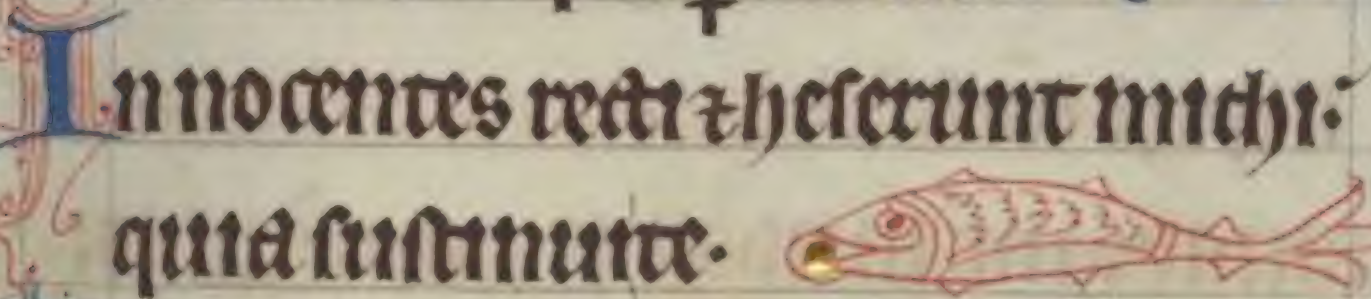 Innocentes recti ⁊ heserunt michi:
quia sustinui te.